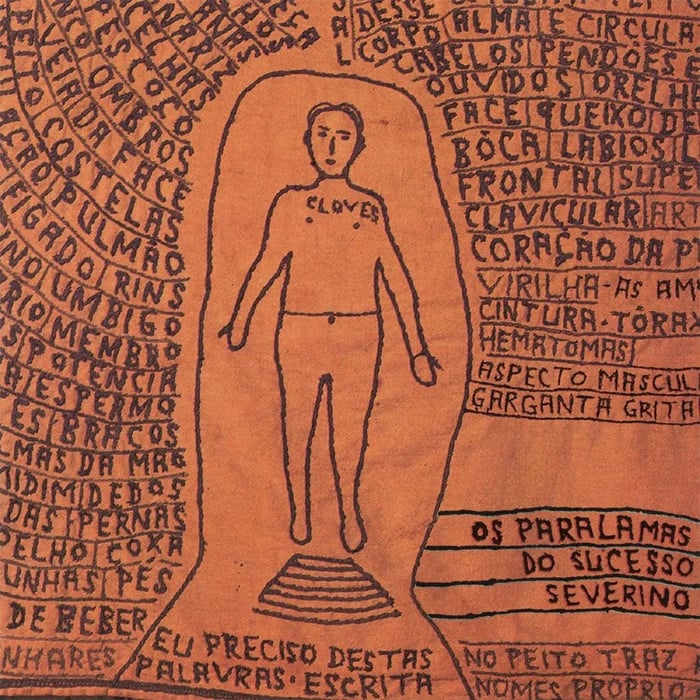 NARIZ
PESCOÇO
OMBROS
VEIA DA FACE
PEITO COSTELAS
PULMÃO
FIGADO RINS
UMBIGO
MEMBRO
POTENCIA
ESPERMO
BRAÇOS
MAS DA MÃE
DEDOS
DAS PERNAS
COXA
UNHAS PÉS
DE BEBER
NHARES
CLOVES
EU PRECISO DESTAS
PALAVRAS. ESCRITA
DESSE
CORPO ALMA E CIRCULA
CABELOS PENDÕES E
OUVIDOS ORELH
FACE QUEIXO DE
BÔCA LABIOS
FRONTAL SUPE
CLAVICULAR ART
CORAÇÃO DA P
VIRILHA-AS AM
CINTURA. TÓRA
HEMATOMAS
ASPECTO MASCUL
GARGANTA GRITA
OS PARALAMAS
DO SUCESSO
SEVERINO
NO PEITO TRAZ
NOMES PROPRIO